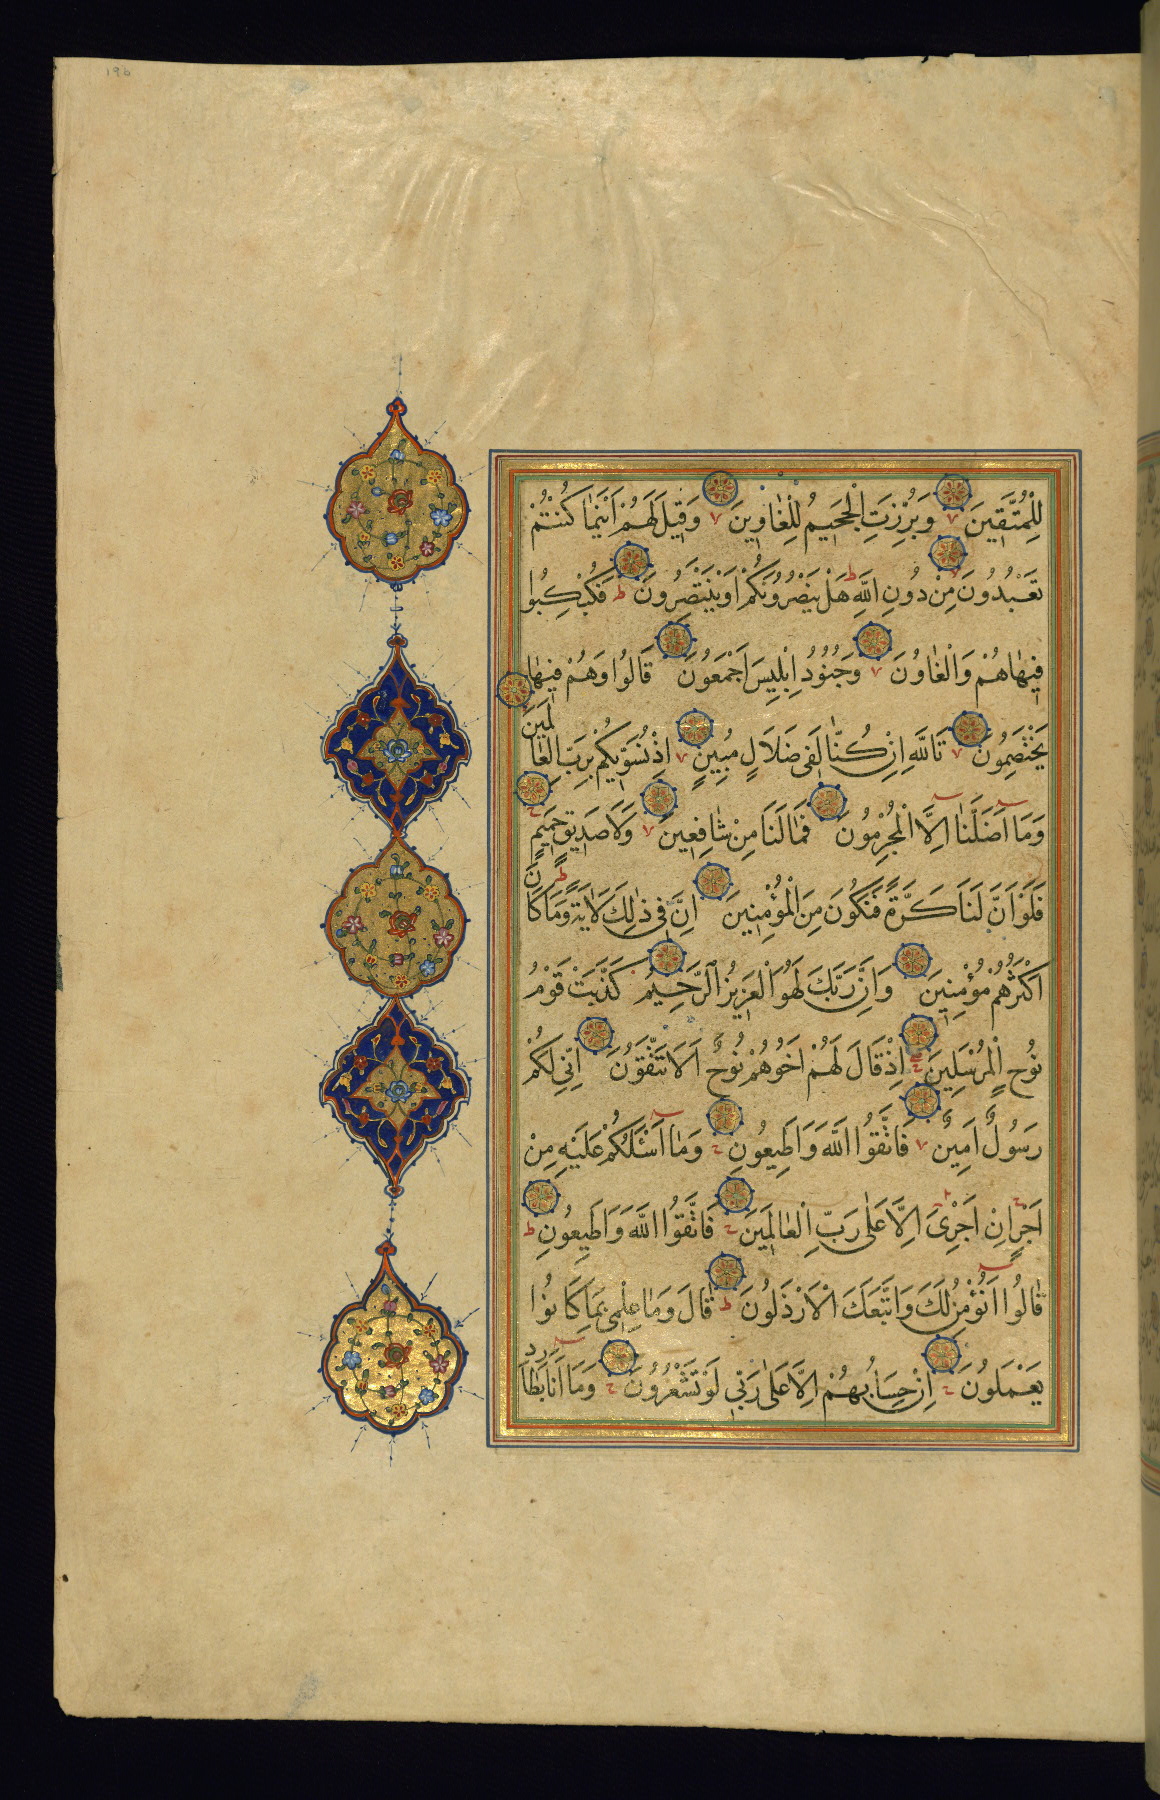 لِلْمُتَّقِينَ وَبُرِّزَتِ الْجَحِيمُ لِلْغَاوِينَ وَقِيلَ لَهُمْ اَيْنَمَا كُنْتُمْ
تَعْبُدُونَ مِنْ دُونِ اللَّهِ هَلْ يَنْصُرُونَكُمْ اَوْ يَنْتَصِرُونَ فَكُبْكِبُوا
فِيهَا هُمْ وَالْغَاوُونَ وَجُنُودُ اِبْلِيسَ اَجْمَعُونَ قَالُوا وَهُمْ فِيهَا
يَخْتَصِمُونَ تَاللَّهِ اِنْ كُنَّا لَفِى ضَلَالٍ مُبِينٍ اِذْ نُسَوِّيكُمْ بِرَبِّ الْعَالَمِينَ
وَمَا اَضَلَّنَا اِلَّا الْمُجْرِمُونَ فَمَا لَنَا مِنْ شَافِعِينَ وَلَا صَدِيقٍ حَمِيمٍ
فَلَوْ اَنَّ لَنَا كَرَّةً فَنَكُونَ مِنَ الْمُؤْمِنِينَ اِنَّ فِى ذٰلِكَ لَاٰيَةً وَمَا كَانَ
اَكْثَرُهُمْ مُؤْمِنِينَ وَاِنَّ رَبَّكَ لَهُوَ الْعَزِيزُ الرَّحِيمُ كَذَّبَتْ قَوْمُ
نُوحٍ الْمُرْسَلِينَ اِذْ قَالَ لَهُمْ اَخُوهُمْ نُوحٌ اَلَا تَتَّقُونَ اِنِّى لَكُمْ
رَسُولٌ اَمِينٌ فَاتَّقُوا اللَّهَ وَاَطِيعُونِ وَمَا اَسْئَلُكُمْ عَلَيْهِ مِنْ
اَجْرٍ اِنْ اَجْرِىَ اِلَّا عَلٰى رَبِّ الْعَالَمِينَ فَاتَّقُوا اللَّهَ وَاَطِيعُونِ
قَالُوا اَنُؤْمِنُ لَكَ وَاتَّبَعَكَ الْاَرْذَلُونَ قَالَ وَمَا عِلْمِى بِمَا كَانُوا
يَعْمَلُونَ اِنْ حِسَابُهُمْ اِلَّا عَلٰى رَبِّى لَوْ تَشْعُرُونَ وَمَا اَنَا بِطَارِدِ